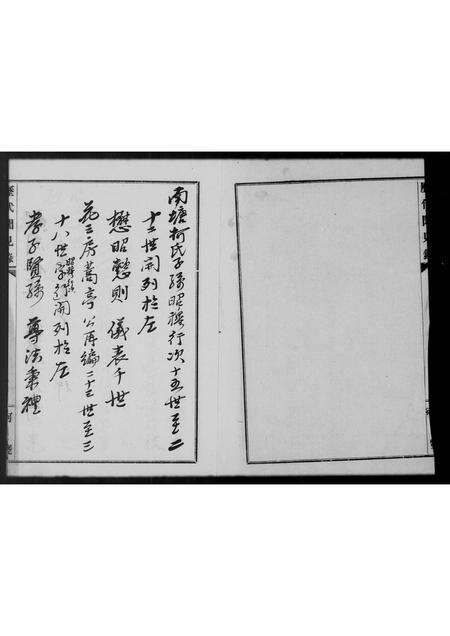 南塘柯氏子孫昭穆行次十五世至二
十二世開列於左
懋昭懿則 儀表千世
苑三房蒿亭公再編二十三世至三
十八世字行開列於左
孝子賢孫 尊法秉禮
歷代聞見錄